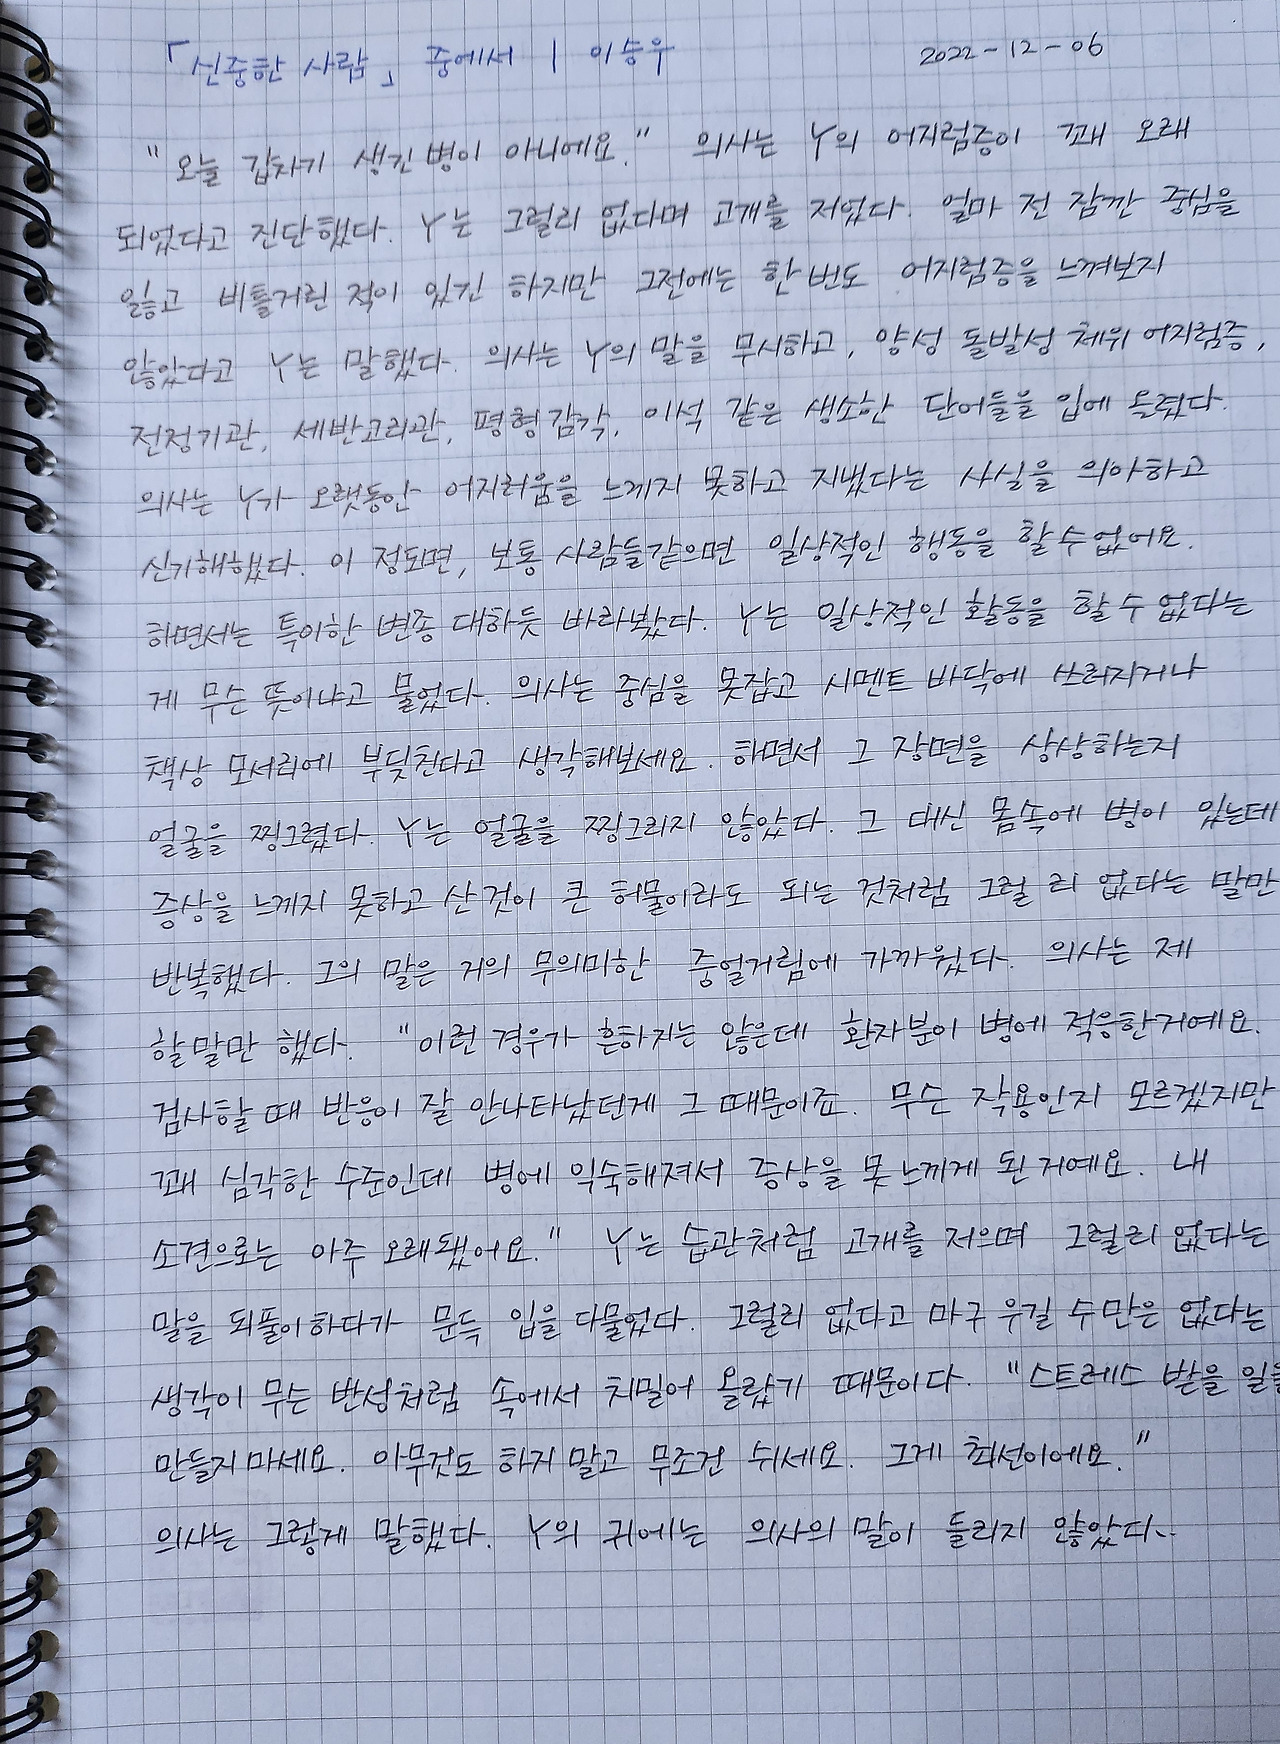 「신중한 사람」 중에서 | 이승우 2022-12-06
"오늘 갑자기 생긴 병이 아니에요." 의사는 Y의 어지럼증이 꽤 오래
되었다고 진단했다. Y는 그럴리 없다며 고개를 저었다. 얼마 전 잠깐 중심을
잃고 비틀거린 적이 있긴 하지만 그전에는 한 번도 어지럼증을 느껴보지
않았다고 Y는 말했다. 의사는 Y의 말을 무시하고, 양성 돌발성 체위 어지럼증,
전정기관, 세반고리관, 평형감각, 이석 같은 생소한 단어들을 입에 올렸다.
의사는 Y가 오랫동안 어지러움을 느끼지 못하고 지냈다는 사실을 의아하고
신기해했다. 이 정도면, 보통 사람들같으면 일상적인 행동을 할수없어요.
하면서는 특이한 변종 대하듯 바라봤다. Y는 일상적인 활동을 할수 없다는
게 무슨 뜻이냐고 물었다. 의사는 중심을 못잡고 시멘트 바닥에 쓰러지거나
책상 모서리에 부딪친다고 생각해보세요. 하면서 그 장면을 상상하는지
얼굴을 찡그렸다. Y는 얼굴을 찡그리지 않았다. 그 대신 몸속에 병이 있는데
증상을 느끼지 못하고 산 것이 큰 허물이라도 되는 것처럼 그럴 리 없다는 말만
반복했다. 그의 말은 거의 무의미한 중얼거림에 가까웠다. 의사는 제
할말만 했다. "이런 경우가 흔하지는 않은데 환자분이 병에 적응한거예요.
검사할 때 반응이 잘 안나타났던게 그 때문이죠. 무슨 작용인지 모르겠지만
꽤 심각한 수준인데 병에 익숙해져서 증상을 못 느끼게 된 거예요. 내
소견으로는 아주 오래됐어요." Y는 습관처럼 고개를 저으며 그럴리 없다는
말을 되풀이하다가 문득 입을 다물었다. 그럴리 없다고 마구 우길 수만은 없다는
생각이 무슨 반성처럼 속에서 치밀어 올랐기 때문이다. "스트레스 받을 일을
만들지마세요. 아무것도 하지 말고 무조건 쉬세요. 그게 최선이에요."
의사는 그렇게 말했다. Y의 귀에는 의사의 말이 들리지 않았다..